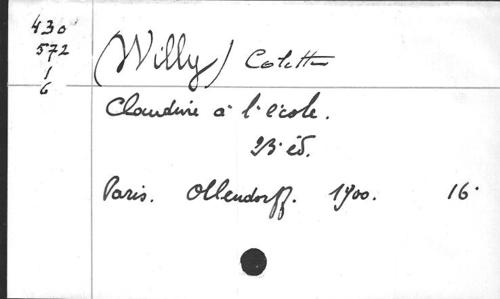 430
572
1
6
(Willy) Colette
Claudine à l'école.
23 éd.
Paris. Ollendorff. 1900. 16°